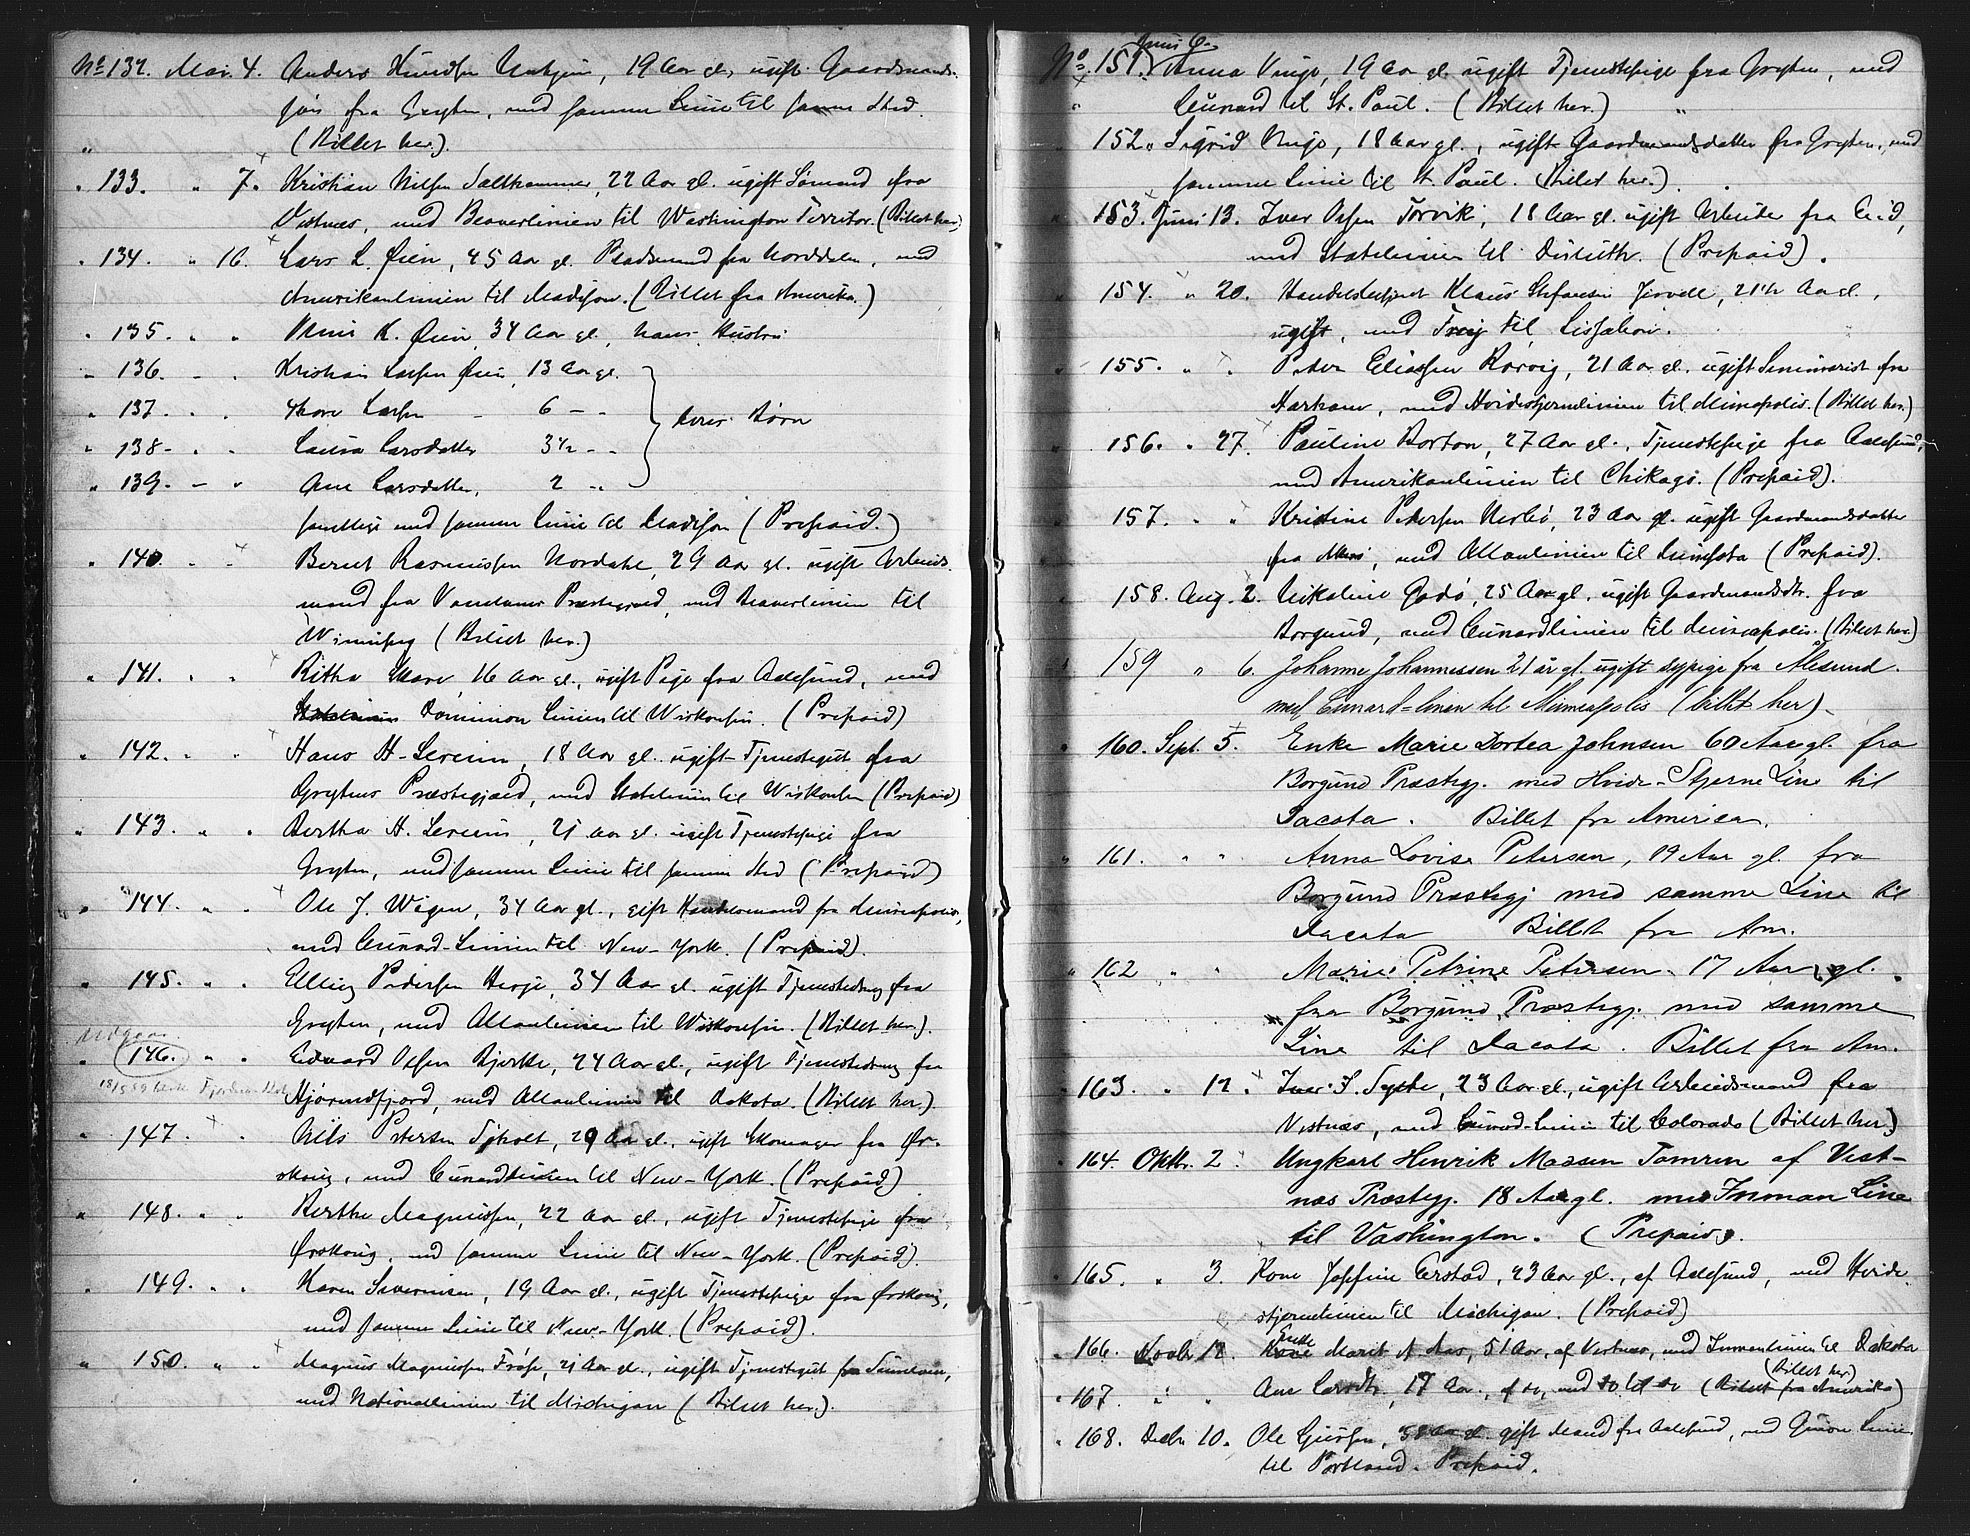 No 132. Mai. 4. Anders Knudsen Unhjem, 19 Aar gl., ugift Gaardmands-
søn fra Grytten, med samme Linie til samme Sted.
" (Billet her).
" 133. " 7. Kristian Nilsen Salthammer, 22 Aar gl. ugift Sømand fra
Vestnæs, med Beaverlinien til Washington Territor. (Billet her)
" 134. " 16. Lars L. Øien, 45 Aar gl. Pladsmand fra Norddalen, med
Amerikanlinien til Madison. (Billet fra Amerika.)
" 135. " " K. Øien, 34 Aar gl., hans Hustru
" 136. " " Kristian Larsen Øien, 13 Aar gl.
" 137. " " Larsen - 6 - "
" 138 - " " Laura Larsdatter 3½ - "
deres Børn
" 139. - " Ane Larsdatter, 2 - "
samtlige med samme Linie til Madison (Prepaid.)
" 140. " " Bernt Rasmussen Nordahl, 29 Aar gl. ugift Arbeids-
mand fra Præstegjæld, med Beaverlinien til
Winnipeg (Billet her.)
" 141. " " 16 Aar gl., ugift Pige fra Aalesund, med
Dominion Linien til Wiskonsin. (Prepaid)
" 142. " " Hans H. 18 Aar gl. ugift Tjenestegut fra
Gryttens Præstegjæld, med Statelinien til Wiskonsin (Prepaid)
" 143. " " Bertha H. 21 Aar gl. ugift Tjenestepige fra
Grytten, med samme Linie til samme Sted (Prepaid)
" 144. " " Ole J. Wigen, 34 Aar gl., gift Handelsmand fra Minneapolis,
med Cunard-Linien til New-York. (Prepaid).
" 145. " " Elling Pedersen Herje, 34 Aar gl. ugift Tjenestedreng fra
Grytten, med Allanlinien til Wiskonsin. (Billet her.).
Udgaar
" 146. " " Edvard Olsen Bjerke, 24 Aar gl., ugift Tjenestedreng fra
18/5 89
Hjørundfjord, med Allanlinien til Dakota. (Billet her.)
" 147. " " Nils Petersen Sjøholt, 29 Aar gl., ugift fra Ør-
skoug, med Cunardlinien til New-York. (Prepaid)
" 148. " " Berthe Magnussen, 22 Aar gl., ugift Tjenestepige fra
Ørskoug, med samme Linie til New-York. (Prepaid).
" 149. " " Karen Severinsen, 19 Aar gl., ugift Tjenestepige fra Ørskoug,
med samme Linie til New-York. (Prepaid).
" 150. " " Magnus Magnussen 21 Aar gl., ugift Tjenestegut fra
med Nationallinien til Michigan (Billet her.).
No 151. Juni 6. Anna Unge, 19 Aar gl. ugift Tjenestepige fra Grytten, med
" Cunard til St. Paul. (Billet her.) "
" 152 " Sigrid Unge, 18 Aar gl., ugift Gaardmandsdatter fra Grytten, med
samme Linie til St. Paul. (Billet her.).
" 153. Juni 13. Iver Olsen Torvik, 18 Aar gl. ugift Arbeider fra Eid,
med Statelinien til Duluth. (Prepaid).
" 154. " 20. Handelsbetjent Klaus Stefansen Jervell, 21½ Aar gl.,
ugift, med til Lissabon.
" 155. " " Peder Eliassen Rørvig, 21 Aar gl. ugift Seminarist fra
Harham, med Hvidestjernelinien til Minneapolis. (Billet her.)
" 156. " 27. Pauline Borton, 27 Aar gl., Tjenestepige fra Aalesund,
med Amerikanlinien til Chikago. (Prepaid).
" 157. " " Kristine Pedersen 23 Aar gl. ugift Gaardmandsdatter
fra med Allanlinien til Minnesota (Prepaid).
" 158. Aug. 2. Nikoline Godø, 25 Aar gl., ugift Gaardmandsdtr. fra
Borgund, med Cunardlinien til Minneapolis. (Billet her.)
" 159 " 6. Johanne Johannessen 21 år gl. ugift sypige fra Ålesund
med Cunard-linien til Minneapolis (billet her).
" 160. Sept. 5. Enke Marie Dortea Johnsen 60 Aar gl. fra
Borgund Præstegj. med Hvide-Stjerne Line til
Dacota. Billet fra America.
" 161. " " Anna Lovise Petersen, 19 Aar gl. fra
Borgund Præstegj med samme Line til
Dacota Billet fra Am.
" 162 " " Marie Petrine Petersen. 17 Aar gl.
fra Borgund Præstegj. med samme
Line til Dacota. Billet fra Am.
" 163. " 12. Iver S. Sylte, 23 Aar gl., ugift Arbeidsmand fra
Vestnæs, med Cunard-Linien til Colorado (Billet her.)
" 164. Oktbr. 2. Ungkarl Henrik Madsen Tomren af Vest-
næs Præstegj. 18 Aar gl. med Inman Line
til Vashington. (Prepaid).
" 165. " 3. Kone Josefine Erstad, 23 Aar gl., af Aalesund, med Hvide-
stjernelinien til Michigan. (Prepaid)
" 166. Novbr 12. Enke Marit A. Aas, 51 Aar, af Vestnæs, med Inmanlinien til Dakota
(Billet her)
" 167. " " Ane Larsdtr, 17 Aar, af do, med do til do (Billet fra Amerika)
" 168. Decbr 10. Ole 58 Aar gl. gift Mand fra Aalesund, med Guion Linien
til Portland. Prepaid.